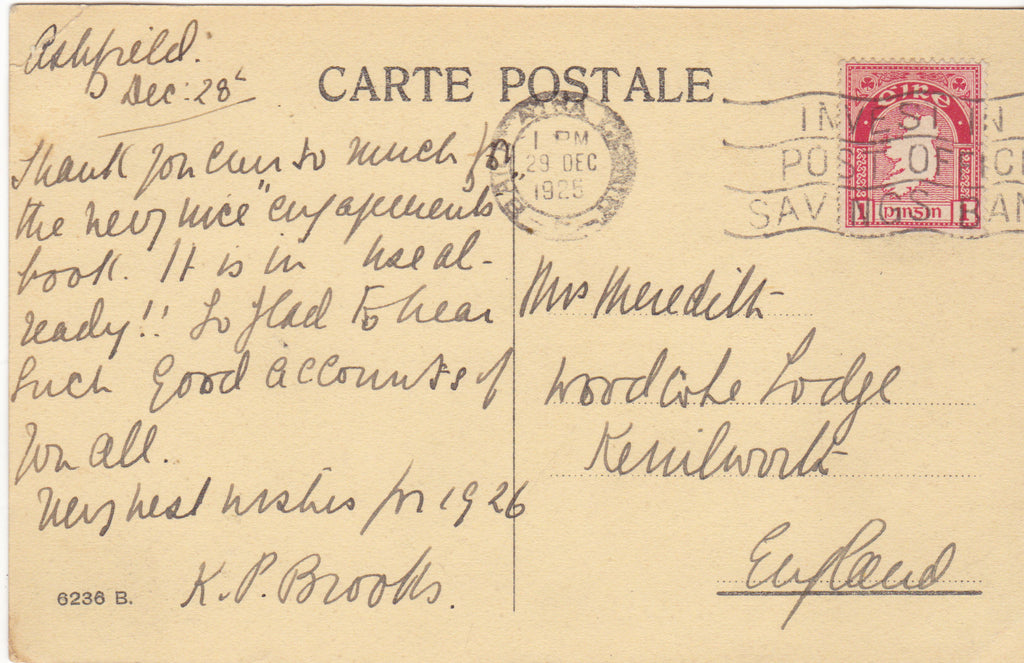 Ashfield.
Dec: 28
CARTE POSTALE
Thank you ever so much for
the very nice "engagements"
book. It is in use al-
ready!! So glad to hear
such good accounts of
you all.
Very best wishes for 1926
K. P. Brooks.
6236 B.
1 PM
29 DEC
1925
INVEST IN
POST OFFICE
SAVINGS BAN
éire
1 pinsin 1
Mrs Meredith
Woodcote Lodge
Kenilworth
England